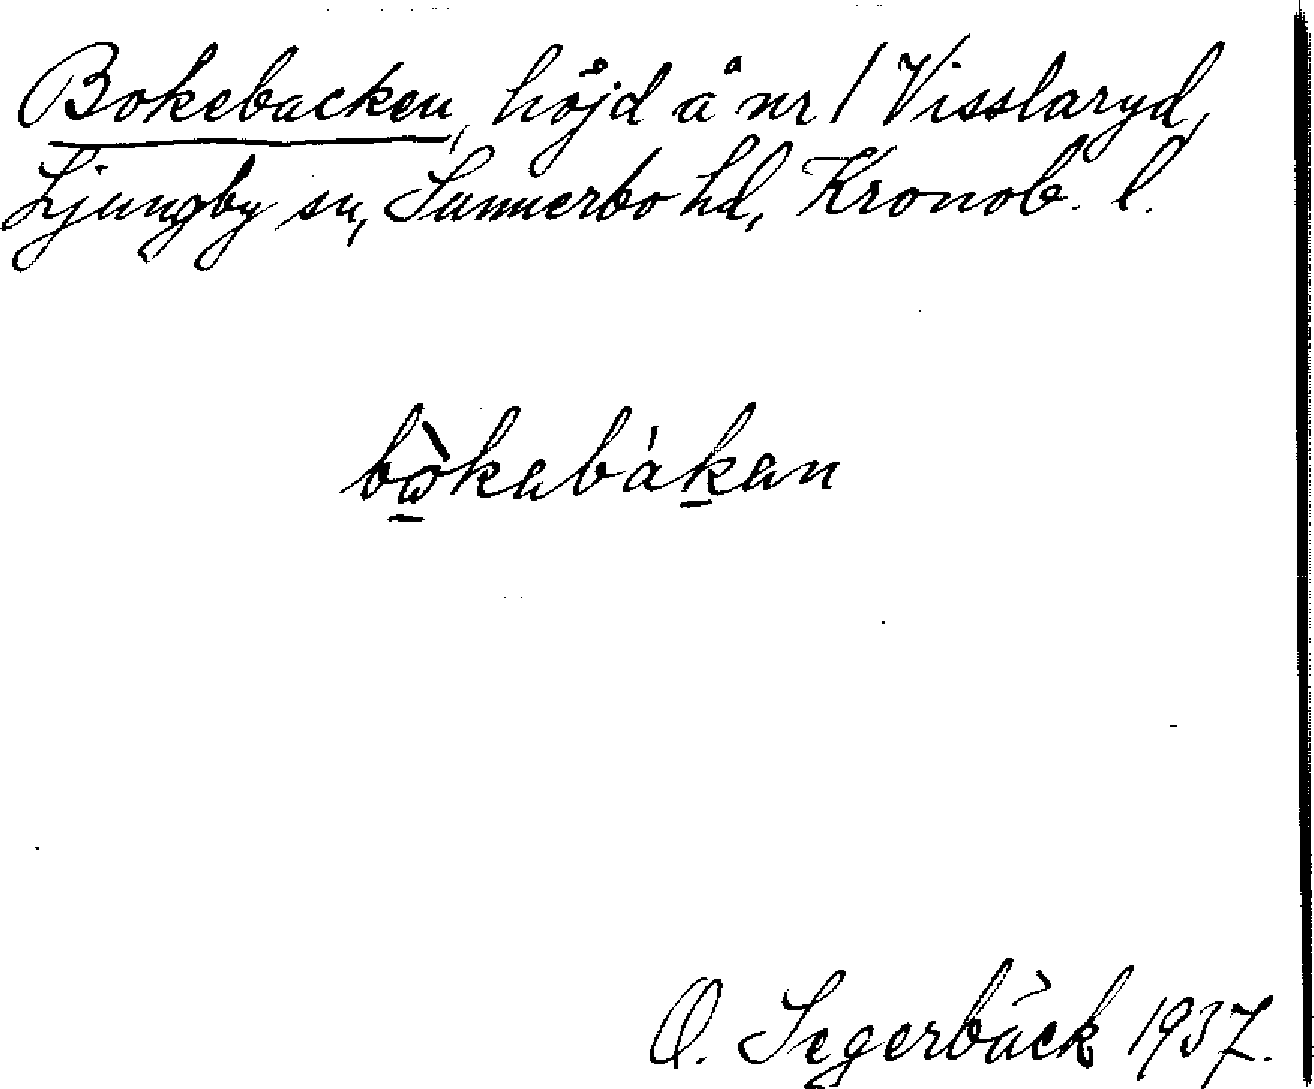 Bokebacken, höjd å nr 1 Visslaryd,
Ljungby sn, Sunnerbo hd, Kronob. l.
bò̱kabáḵan
O. Segerbäck 1937.